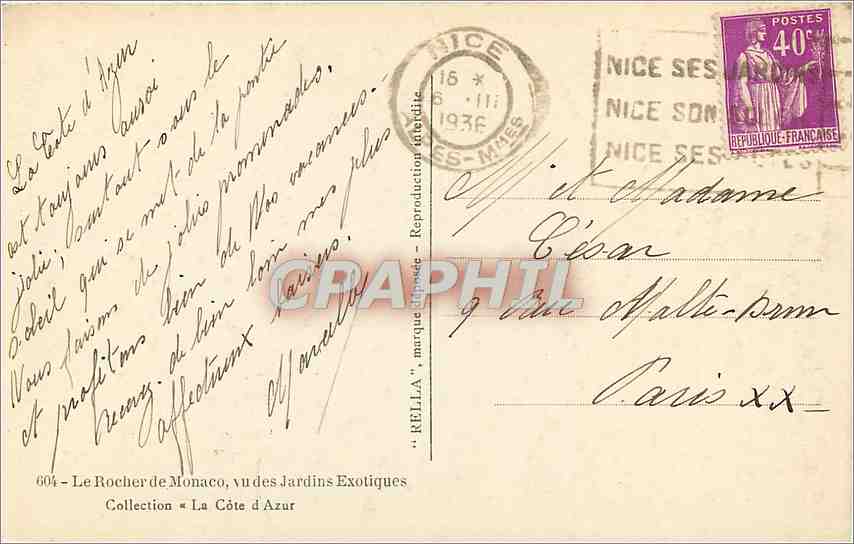 La Côte d'Azur
est toujours aussi
jolie, surtout sous le
soleil qui se met de la partie
Nous faisons de jolies promenades,
et profitons bien de Nos vacances.
Recevez de bien loin mes plus
affectueux baisers.
Marcelle
604 - Le Rocher de Monaco, vu des Jardins Exotiques
Collection « La Côte d'Azur
"RELLA", marque déposée - Reproduction interdite
NICE
16 *
6 . III
1936
ALPES-MMES
NICE SES JARDINS
NICE SON
NICE SES
POSTES
40c
REPUBLIQUE-FRANCAISE
M et Madame
César
9 rue Malte-Brun
Paris XX
CPAPHIL